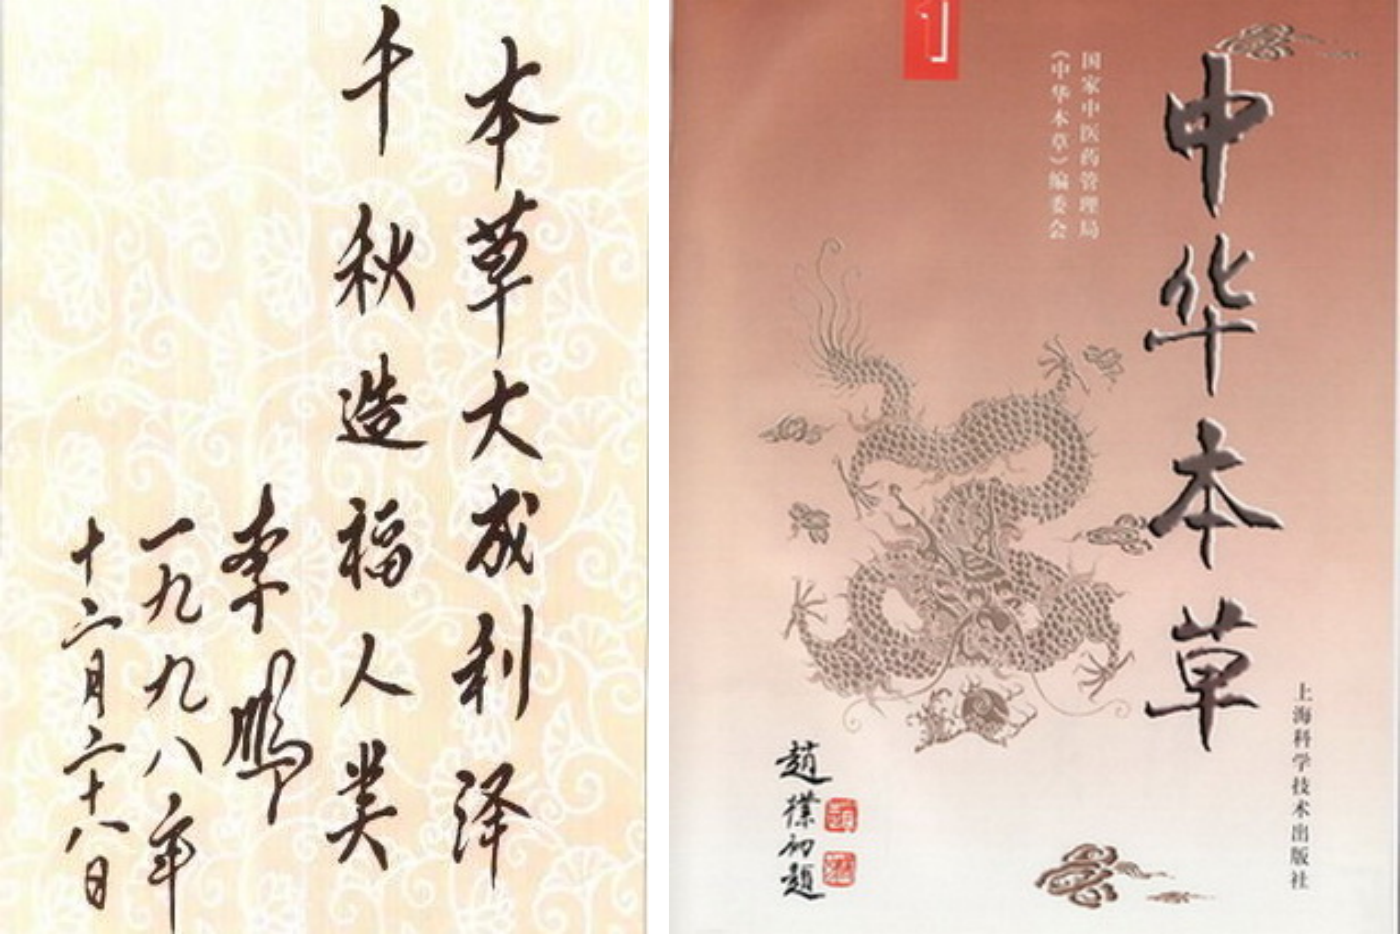 本草大成利泽
千秋造福人类
李鹏
一九九八年
十二月二十八日
1
中华本草
国家中医药管理局
《中华本草》编委会
上海科学技术出版社
趙樸初題